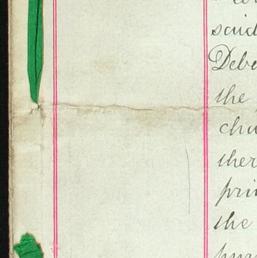 said
Debe
the
cha
ther
prin
the